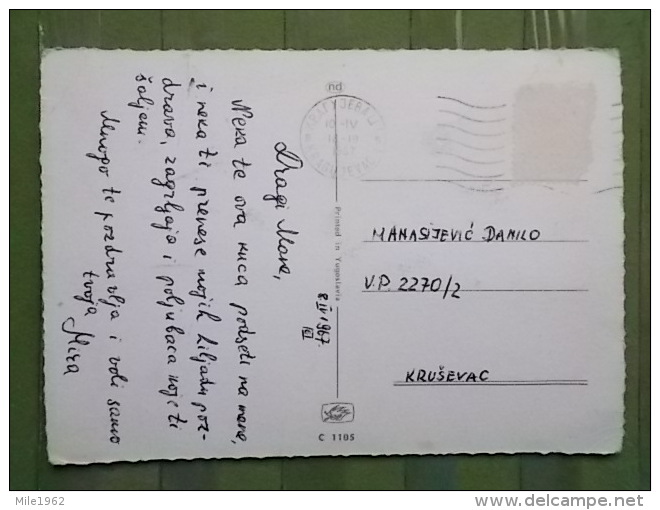 Dragi Mane,
Neka te ova maca podseti na mene,
i neka ti prenese mojih hiljadu poz-
drava, zagrljaja i poljubaca koje ti
šaljem.
Mnogo te pozdravlja i voli samo
tvoja
Mira
8 IV 1967.
Printed in Yugoslavia
nd
MANASIJEVIĆ DANILO
V.P. 2270/2
KRUŠEVAC
C 1105
Mile1962
delcampe.net